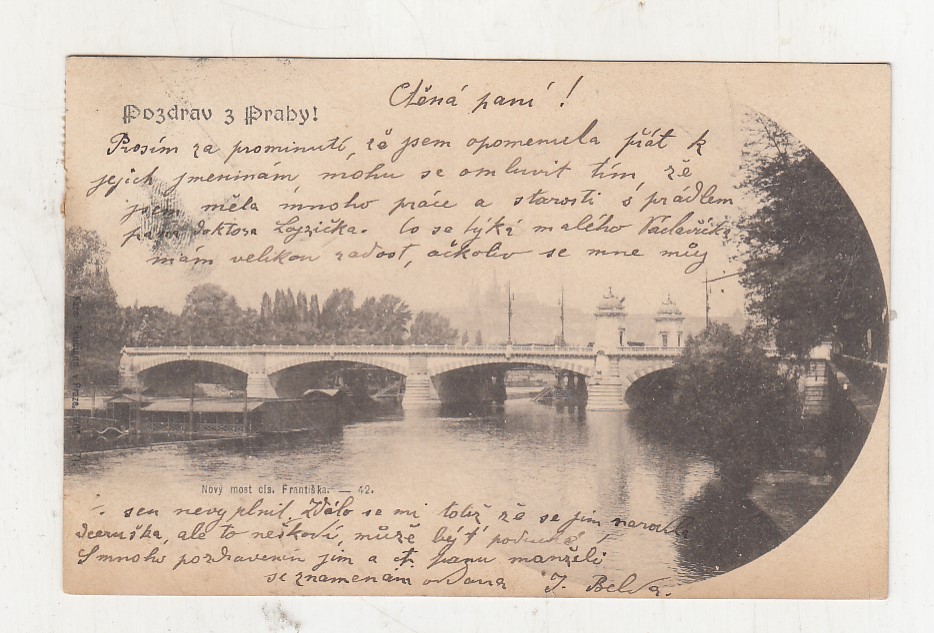 Pozdrav z Prahy!
Ctěná paní!
Prosím za prominutí, že jsem opomenula přát k
jejich jmeninám mohu se omluvit tím že
jsem měla mnoho práce a starosti s prádlem
pana doktora Lojzíčka. Co se týká malého Václavíčka
mám velikou radost, ačkoliv se mne můj
Nový most cís. Františka. — 42.
sen nevyplnil, Zdálo se mi totiž že se jim narodila
dceruška, ale to neškodí, může být podruhé!
S mnoho pozdravením jim a panu manželi
se znamenám oddaná J.